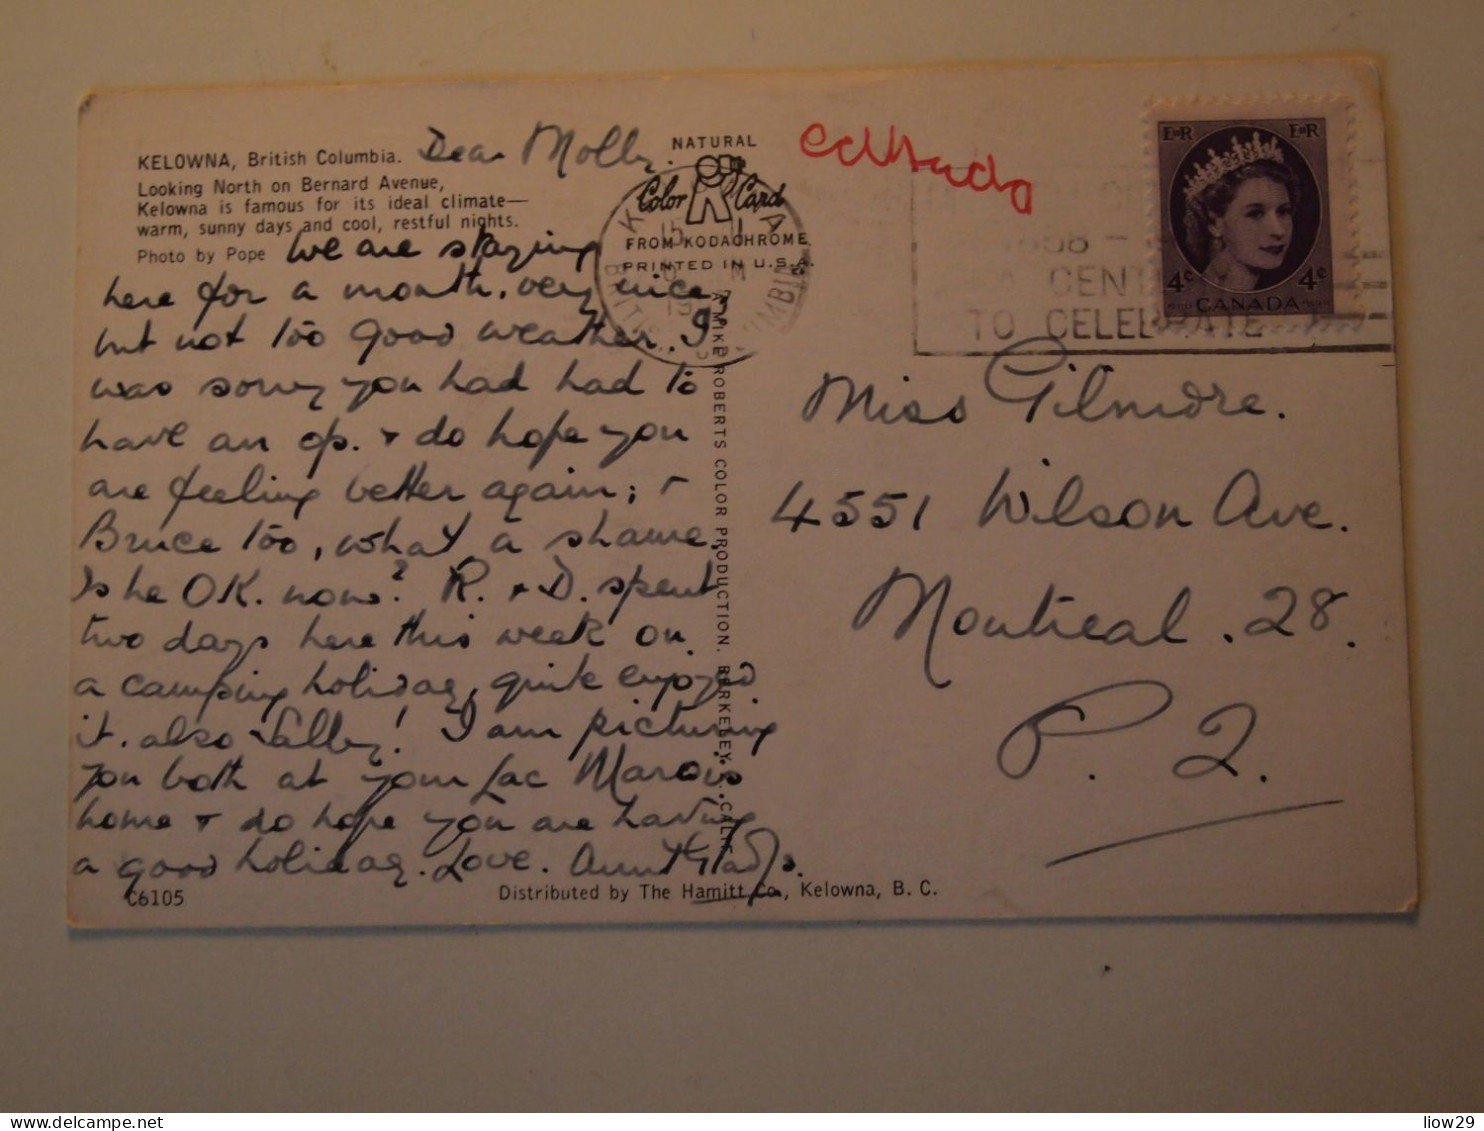 KELOWNA, British Columbia.
Looking North on Bernard Avenue,
Kelowna is famous for its ideal climate—
warm, sunny days and cool, restful nights.
Photo by Pope
Dear Molly.
We are staying
here for a month. very nice,
but not too good weather. I
was sorry you had had to
have an op. & do hope you
are feeling better again; &
Bruce too, what a shame.
Is he OK. now? R. & D. spent
two days here this week on
a camping holiday, quite enjoyed
it. also Sally! I am picturing
you both at your Lac Marois
home & do hope you are having
a good holiday. Love. Aunt Gladys.
C6105
Distributed by The Hamitt Co., Kelowna, B. C.
NATURAL
Color Card
FROM KODACHROME
PRINTED IN U.S.A.
A MIKE ROBERTS COLOR PRODUCTION. BERKELEY 2. CALIF.
15
BRITISH COLUMBIA
1858 -
A CENT
TO CELEBRATE
E R
E R
4¢
4¢
CANADA
Miss Gilmore.
4551 Wilson Ave.
Montreal. 28.
P. Q.
delcampe.net
liow29